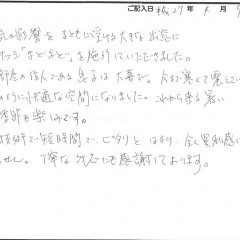 ご記入日 H27年 4月
の影響を まともに受ける大きな出窓に
サッシ「まどまど」を施行していただきました。
の住人である息子は大喜び。今まで寒くて震えてい
のように快適な空間になりました。これから来る暑い
季節も楽しみです。
技術で短時間で、ピタリと はまり、全く異和感に
せん。丁寧な対応にも感謝しております。